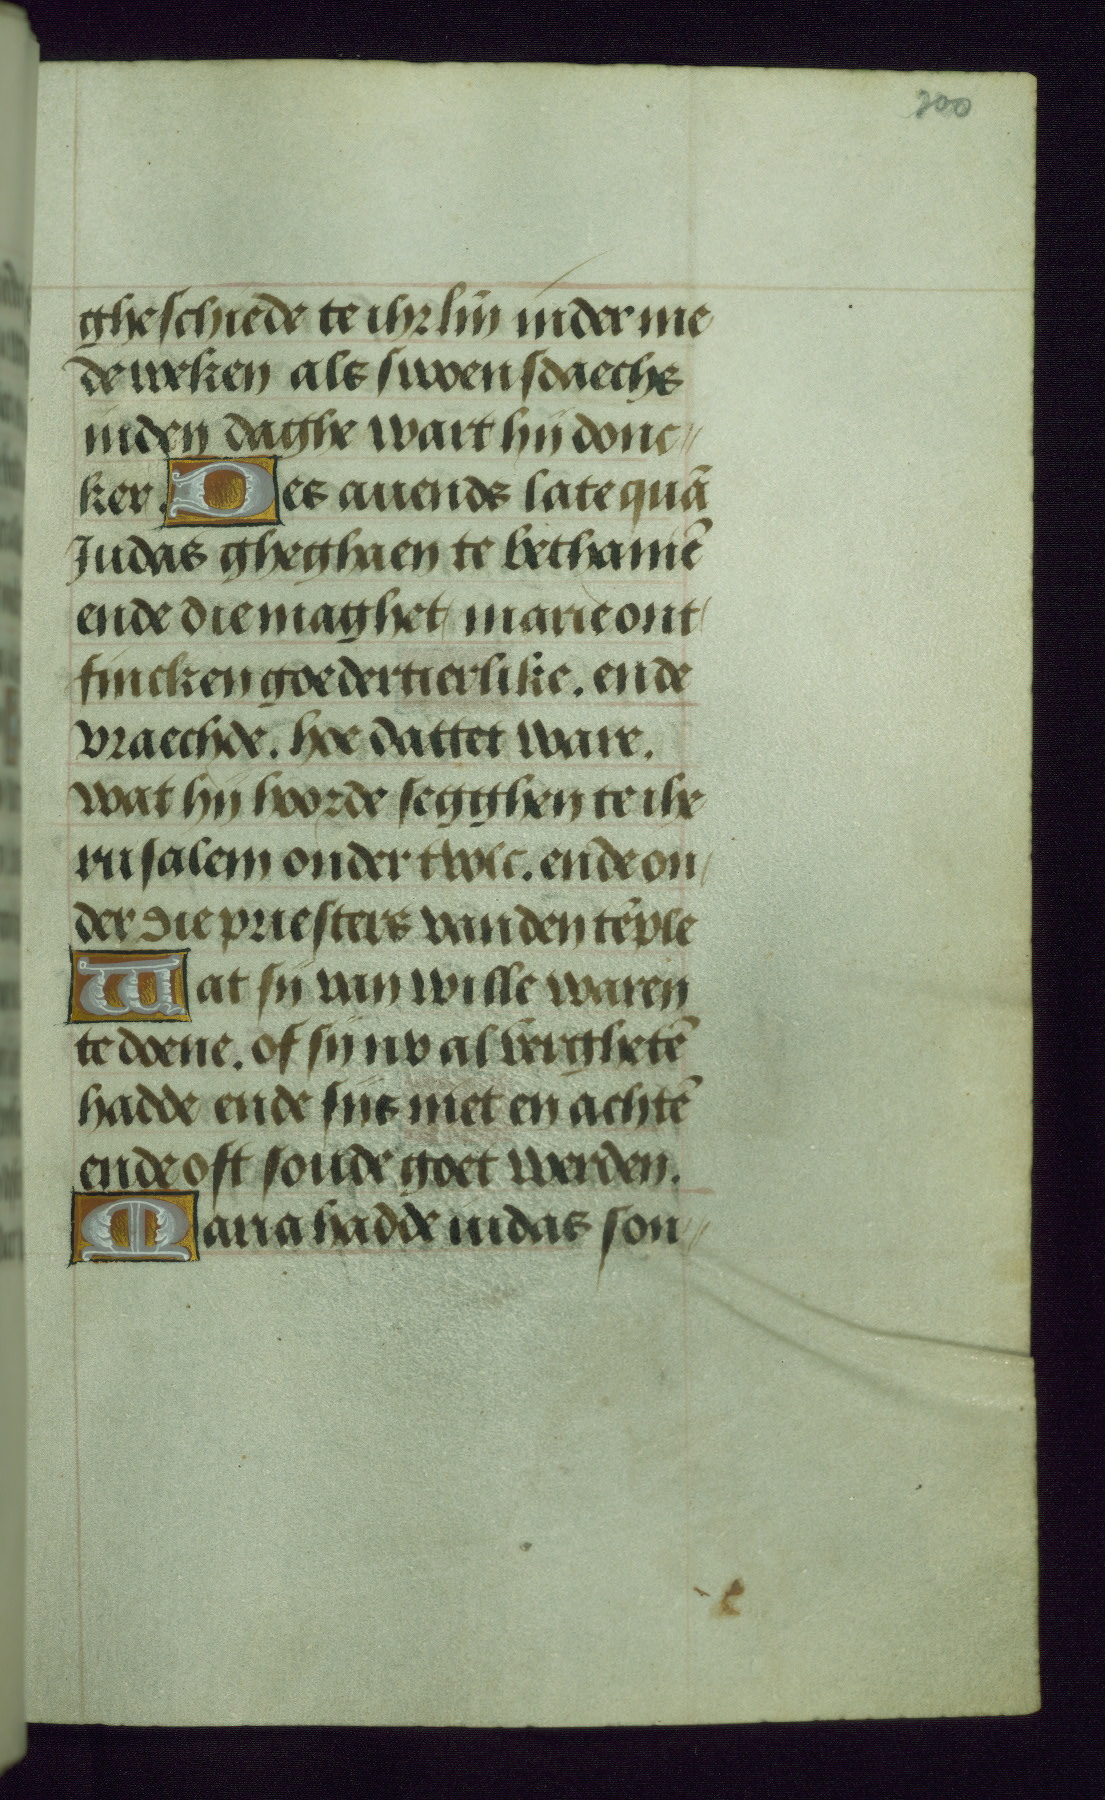 200
gheschiede te ihrlm̄ in der me
de weken als swoensdaechs
in den daghe wart hij donc〃
ker. Des auends late quā
Judas gheghaen te bethaniē
ende die maghet marie ont
fincken goedertierlike. ende
vraechde. hoe dattet ware.
wat hij hoorde segghen te ihe
rusalem onder twlc. ende on
der die priesters van den tēple
Wat sij van wille waren
te doene. of sij nv al verghetē
hadde ende sijs niet en achtē
ende oft soude goet werden.
Maria hadde iudas son〃